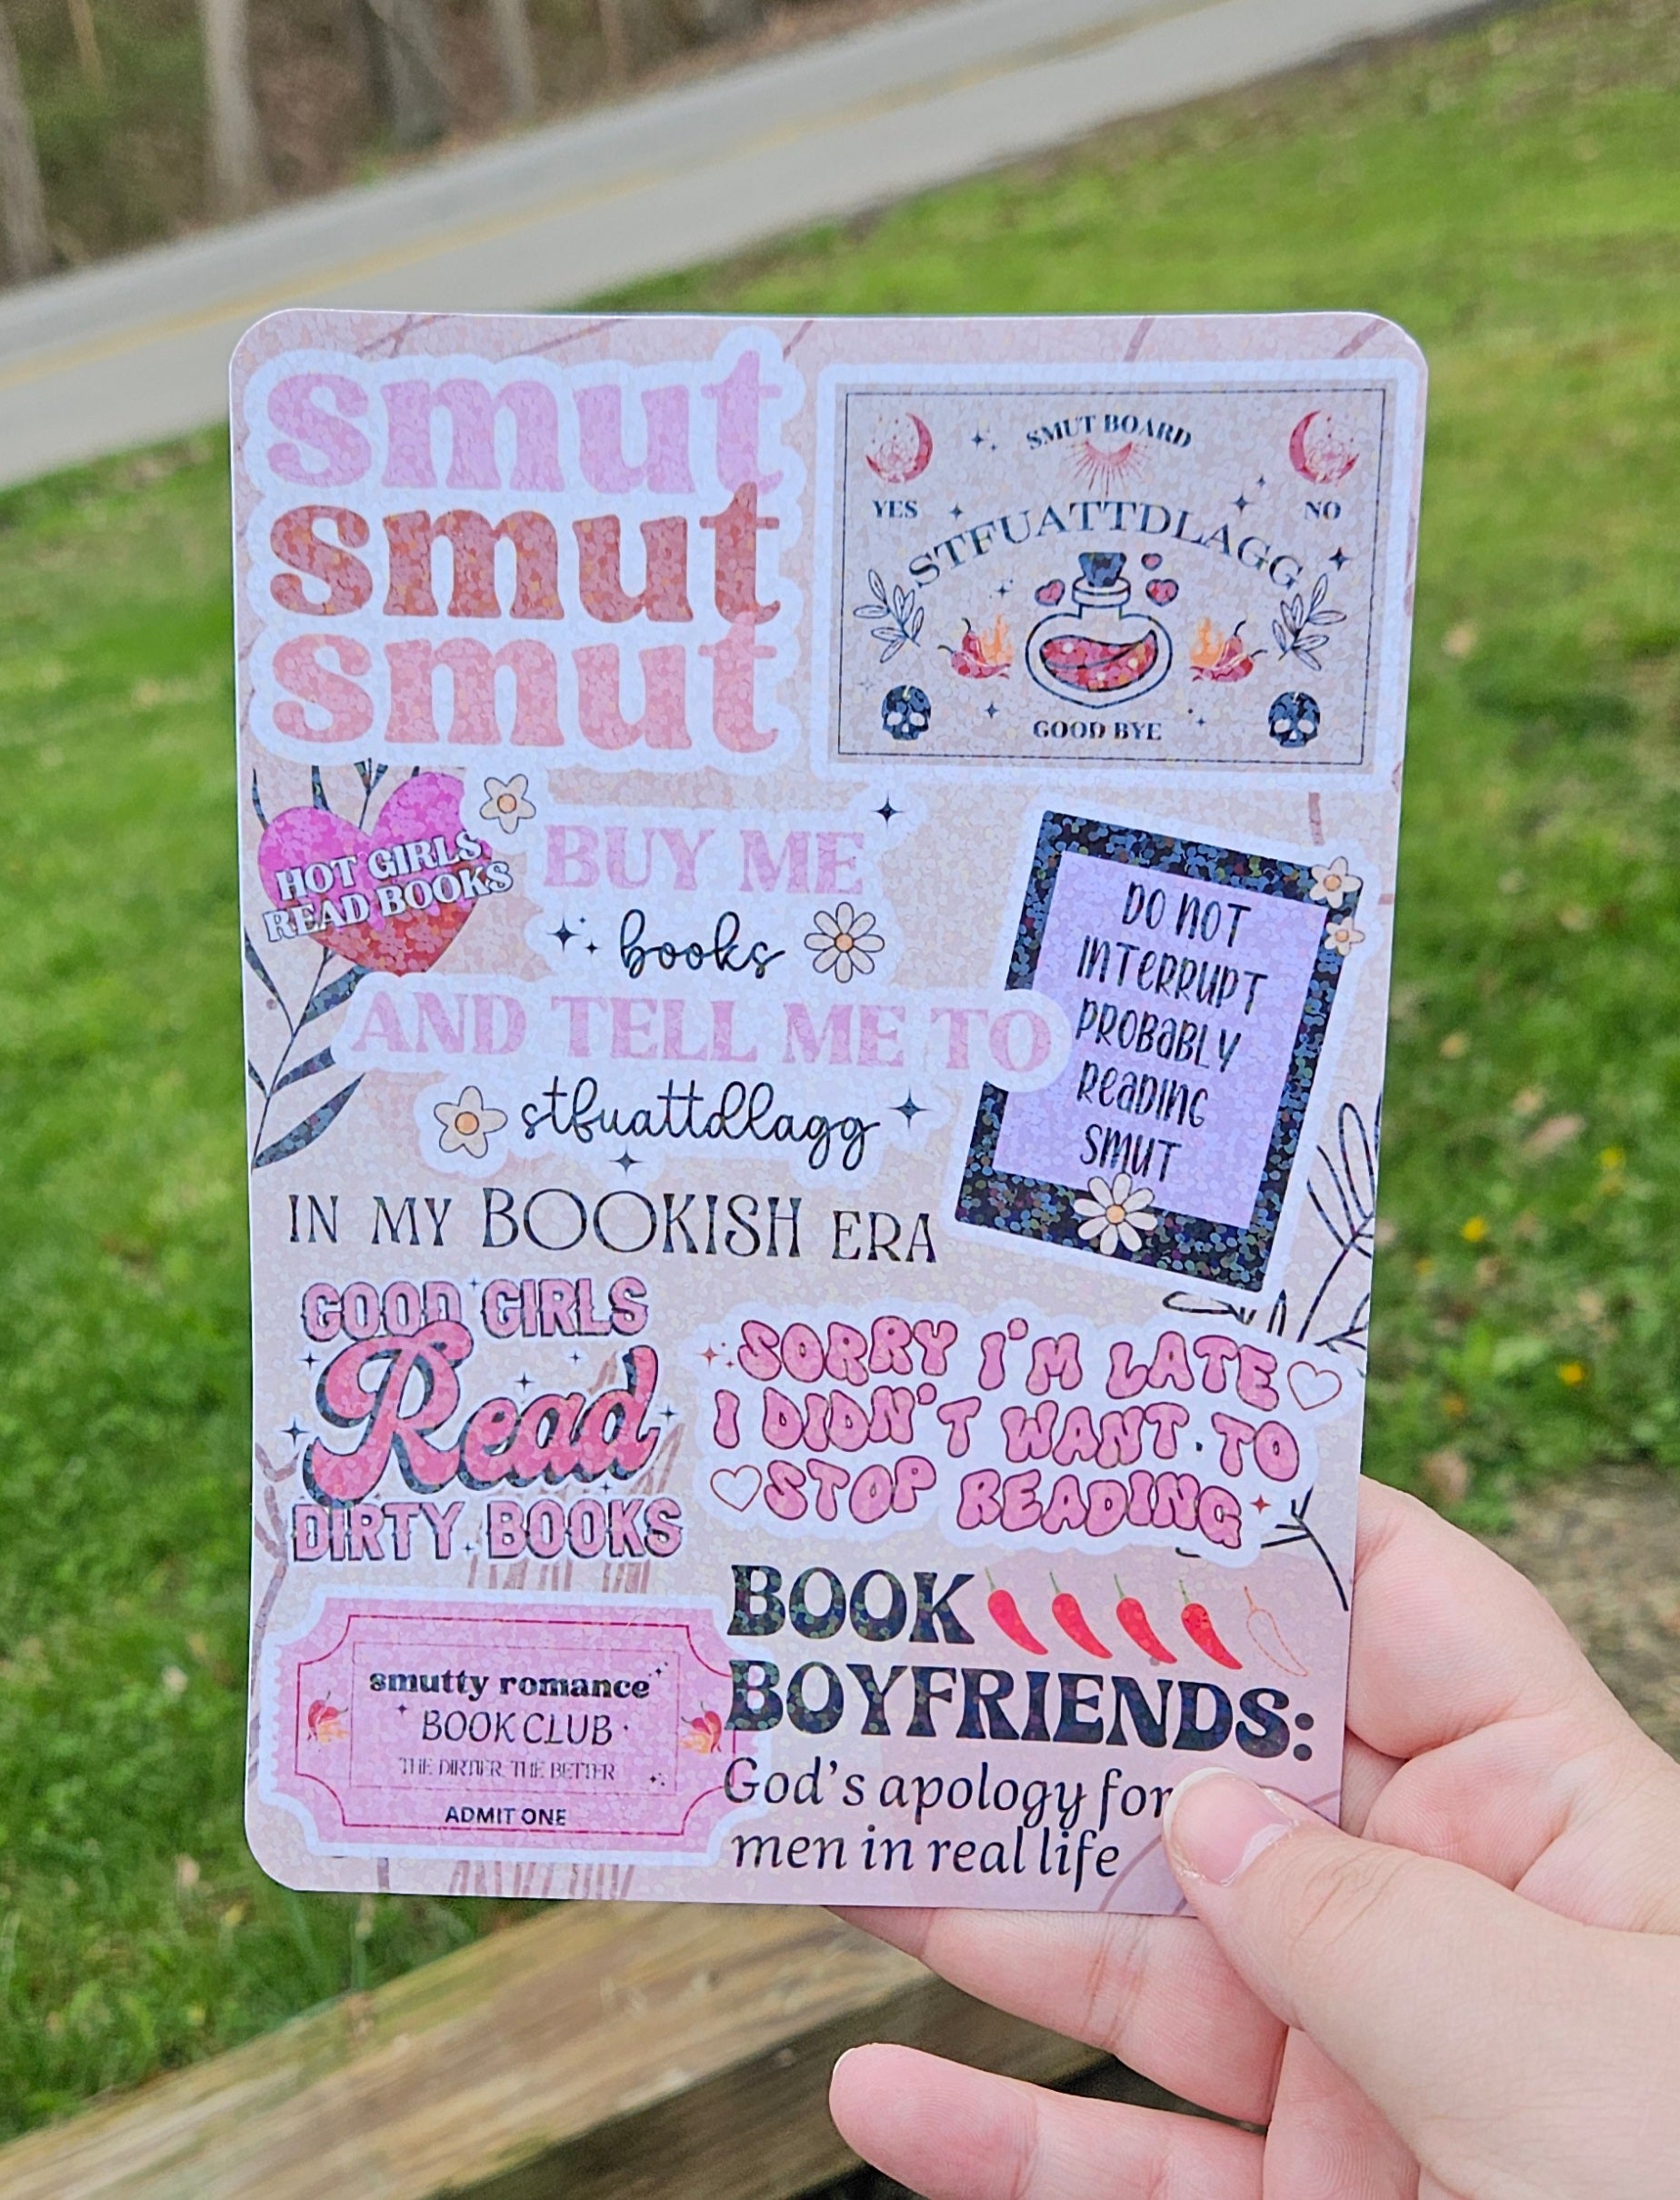 smut
smut
smut
SMUT BOARD
YES
NO
STFUATTDLAGG
GOOD BYE
HOT GIRLS
READ BOOKS
BUY ME
books
AND TELL ME TO
stfuattdlagg
DO NOT
INTERRUPT
PROBABLY
READING
SMUT
IN MY BOOKISH ERA
GOOD GIRLS
Read
DIRTY BOOKS
SORRY I'M LATE
I DIDN'T WANT TO
STOP READING
smutty romance
BOOK CLUB
THE DIRTIER THE BETTER
ADMIT ONE
BOOK
BOYFRIENDS:
God's apology for
men in real life